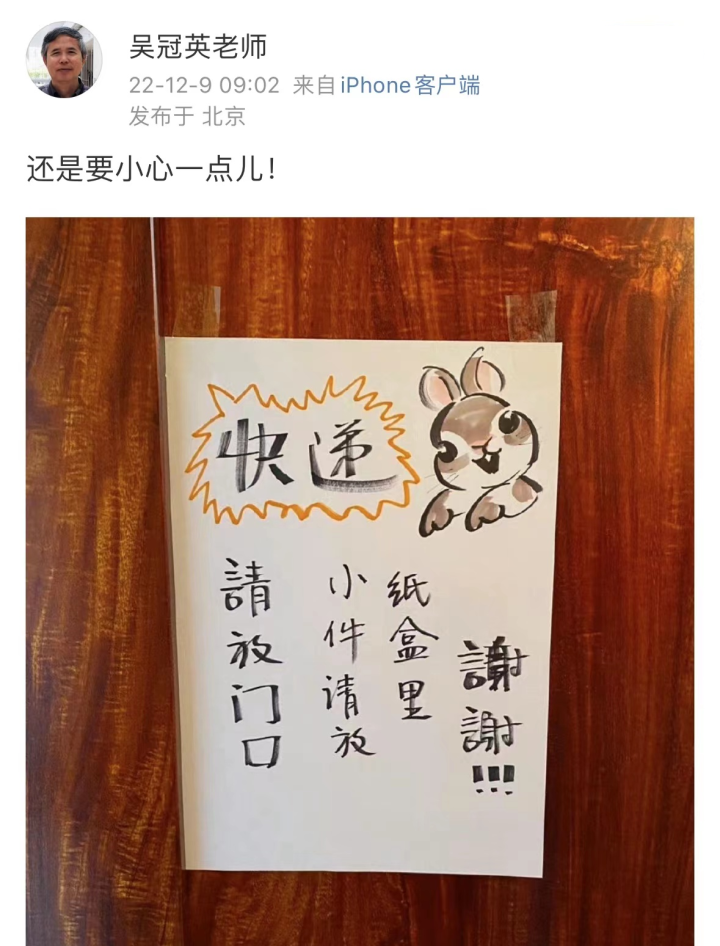 吴冠英老师
22-12-9 09:02 来自 iPhone客户端
发布于 北京
还是要小心一点儿！
快递
請放门口
小件请放
纸盒里
謝謝!!!